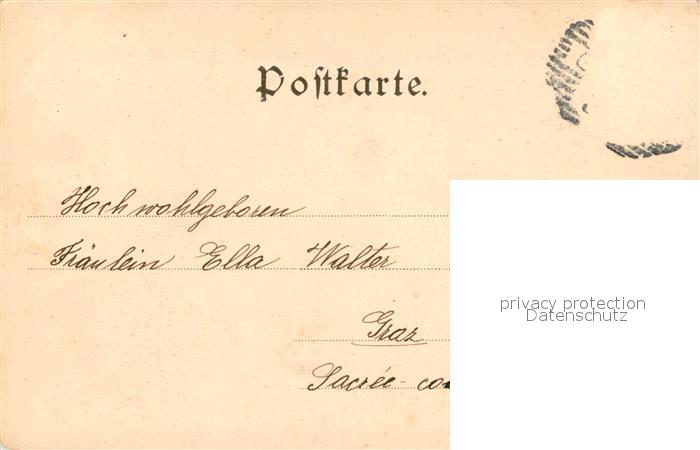 Postkarte.
Hochwohlgeboren
Fräulein Ella Walter
Graz
Sacrée-
privacy protection
Datenschutz